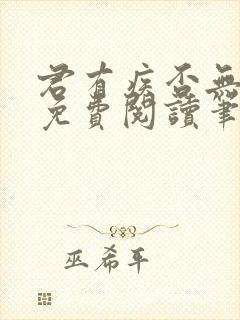 君有疾否無
免費閱讀筆
巫希平